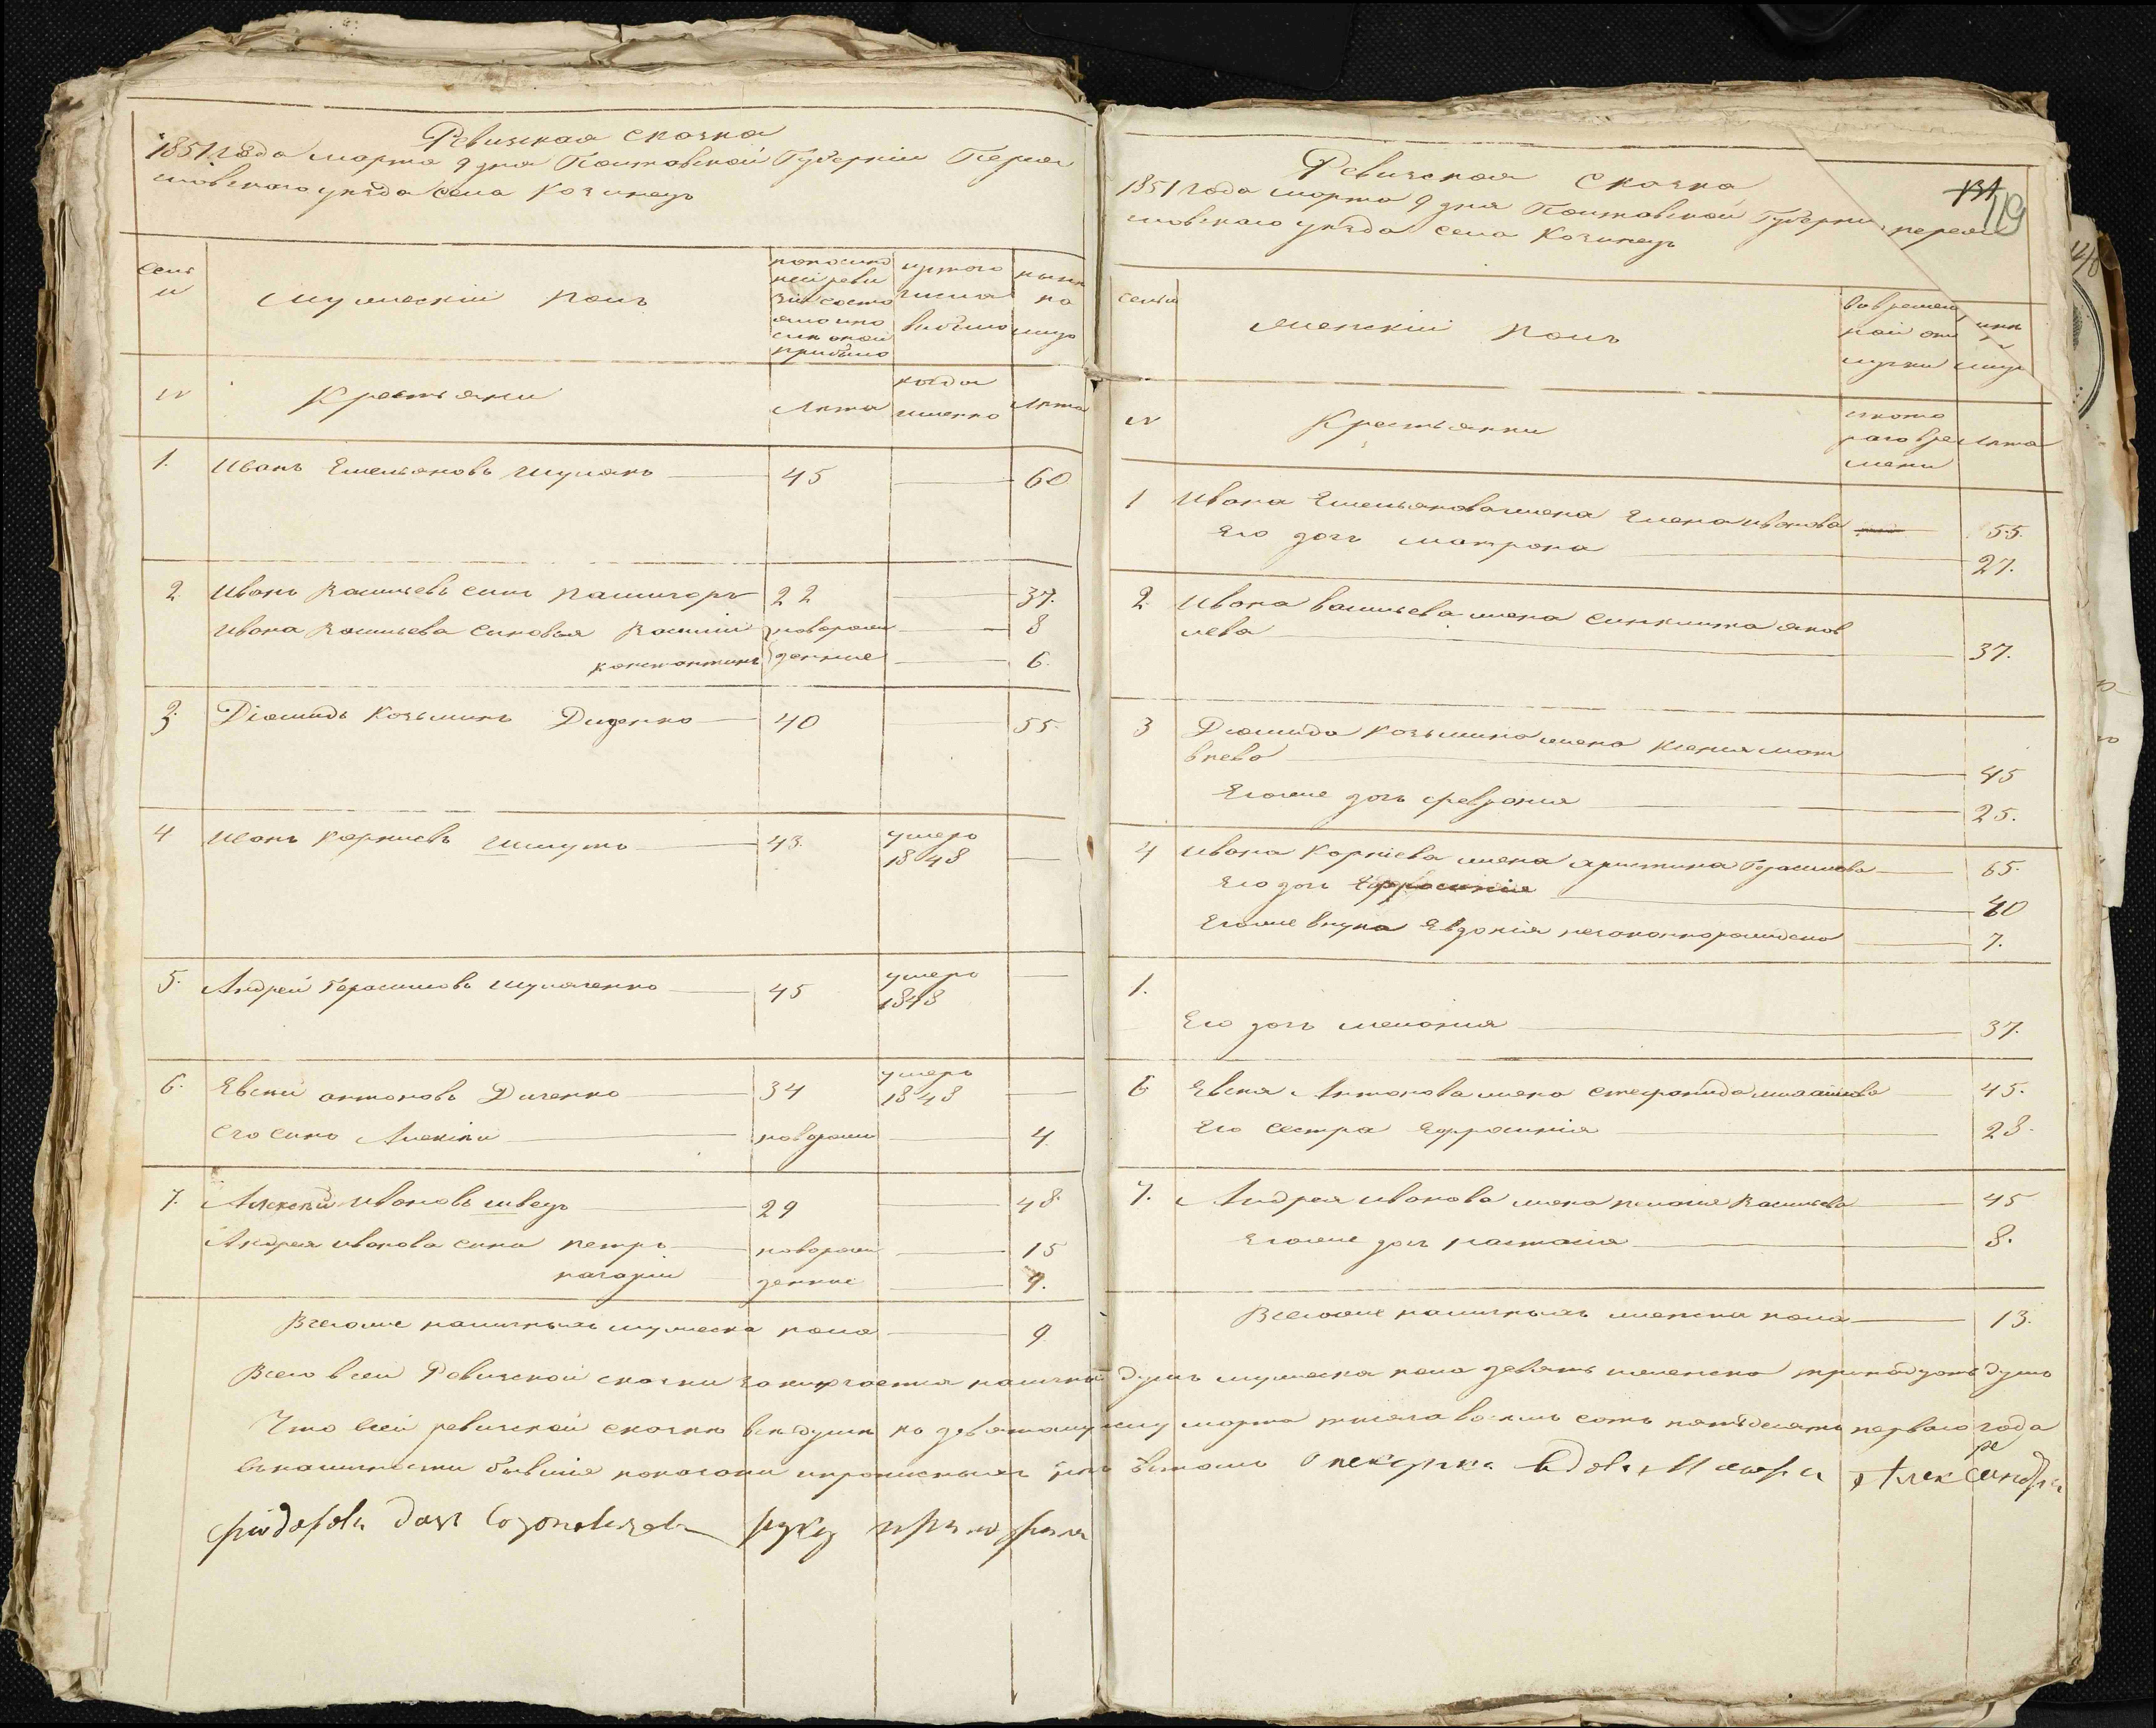 Ревизская сказка
1851 года марта 9 дня Полтавской Губернии Переяс
лавского уезда села Козинец
семьи
мужеский пол
по последней ревизии состояло или после оной прибыло
из того числа выбыло
ныне на лицо
№
Крестьяни
Лета
когда именно
Лета
1. Иванъ Емельяновъ 45 60
2. Иванъ Васильевъ синъ 22 37.
Ивана Васильева синовья Василий новорож 8
Константинъ денние 6.
3. Діомидъ Козьминъ Диденко 40 55.
4 Иванъ Корниевъ 43. умеръ
1848
5. Андрей Герасимовъ 45 умеръ
1848
6. Евсей Антоновъ Диченко 34 умеръ
1848
Его синъ Алексей новорож 4
7. Алексей Ивановъ швецъ 29 48.
Андрея Иванова сини Петръ новорож 15
денние 9.
Всего же наличныхъ мужеска пола 9
Ревизская Сказка
1851 года марта 9 дня Полтавской Губернии переяс
лавского уезда села Козинец
131
119
семьи
женский пол
во временной отлучки
на лицо
№
Крестьянки
с которого времени
Лета
1 Ивана Емельянова жена Елена Иванова 55.
Его дочь матрона 27.
2. Ивана Васильева жена Синклита Яков
лева 37.
3 Діомида Козьмина жена Ксения мат
веева 45
Его же дочь феврония 25.
4 Ивана Корніева жена христина Герасимова 65.
Его дочь Ефросиния 40
Его же внука Евдокія незаконнорожденна 7.
1.
Его дочь мелания 37.
6 Евсея Антонова жена Стефанида 45.
Его сестра Ефросинія 28.
7. Андрея Иванова жена Пелагея Васильева 45
Его же дочь настасія 8.
Всего же наличныхъ женска пола 13.
Всего в сей Ревизской сказки заключается наличныхъ душъ мужеска пола девять женска тринадцать душъ
Что в сей ревизской сказке все души по девятому числу марта тысяча восемь сотъ пятьдесять первого года
въ наличности бывшие показани и прописныхъ нетъ в томъ Опекунка вдова Маіорша Александра
Фіодорова дочь руку приложила